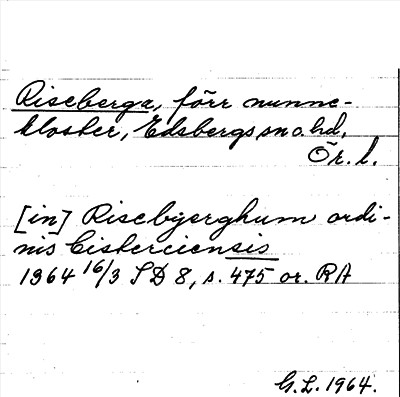 Riseberga, förr nunne-
kloster, Edsbergs sn o. hd,
Ör. l.
[in] Risebyerghum ordi-
nis Cisterciensis
1364 16/3 SD 8, s. 475 or. RA
G. L. 1964.